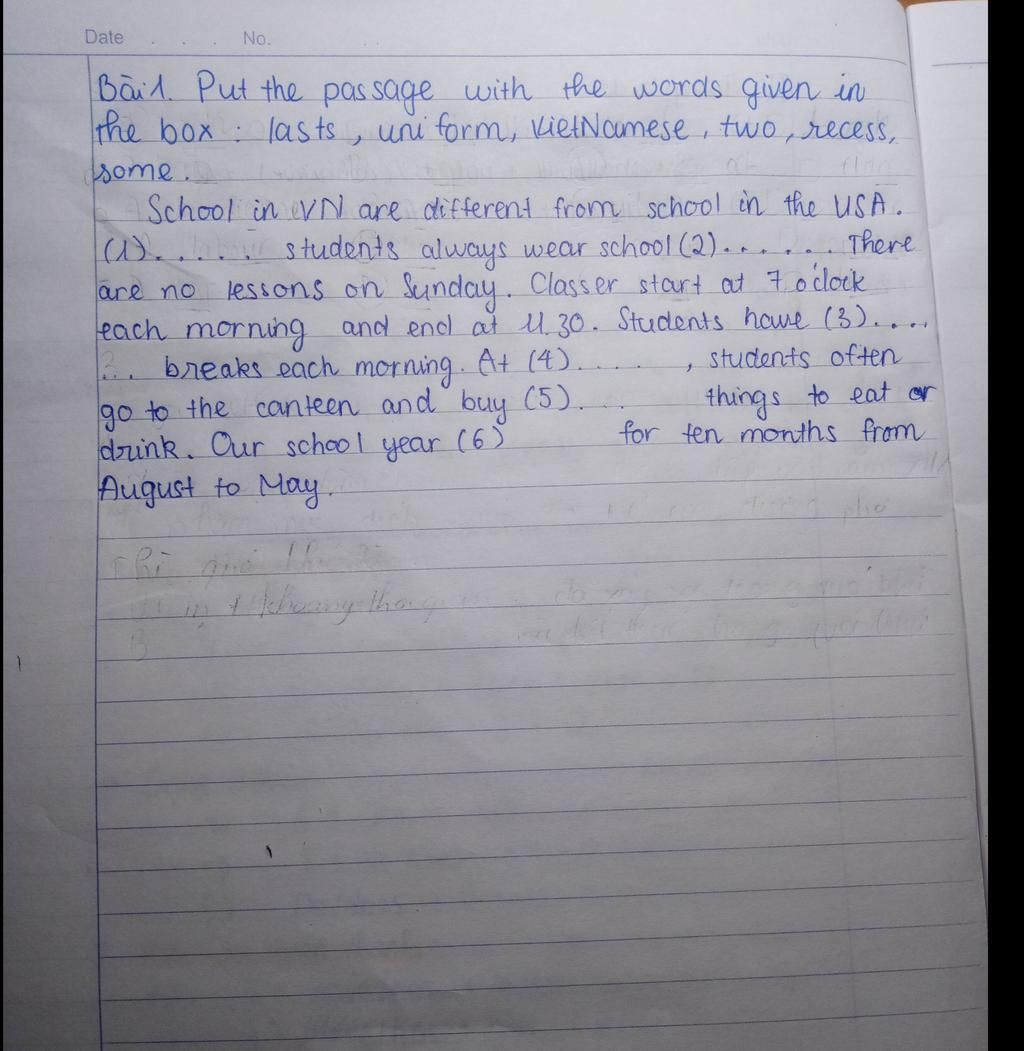 Date . . . No.
Bài 1. Put the passage with the words given in
the box : lasts, uniform, VietNamese, two, recess,
some.
School in VN are different from school in the USA.
(1)...... students always wear school (2)....... There
are no lessons on Sunday. Classer start at 7 o'clock
each morning and end at 11.30. Students have (3)....
... breaks each morning. At (4)....., students often
go to the canteen and buy (5)... things to eat or
drink. Our school year (6) for ten months from
August to May.